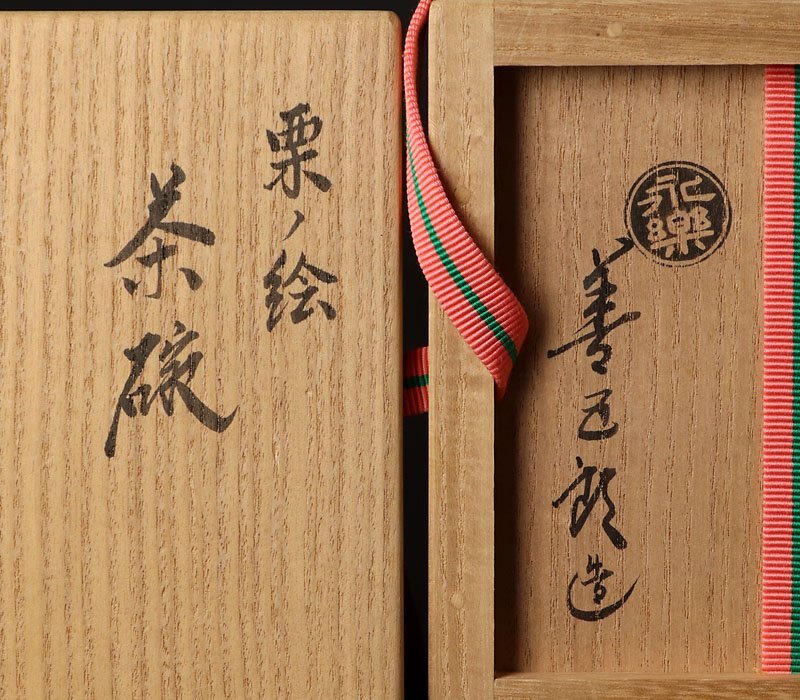 栗ノ絵
茶碗
永樂
善五郎造